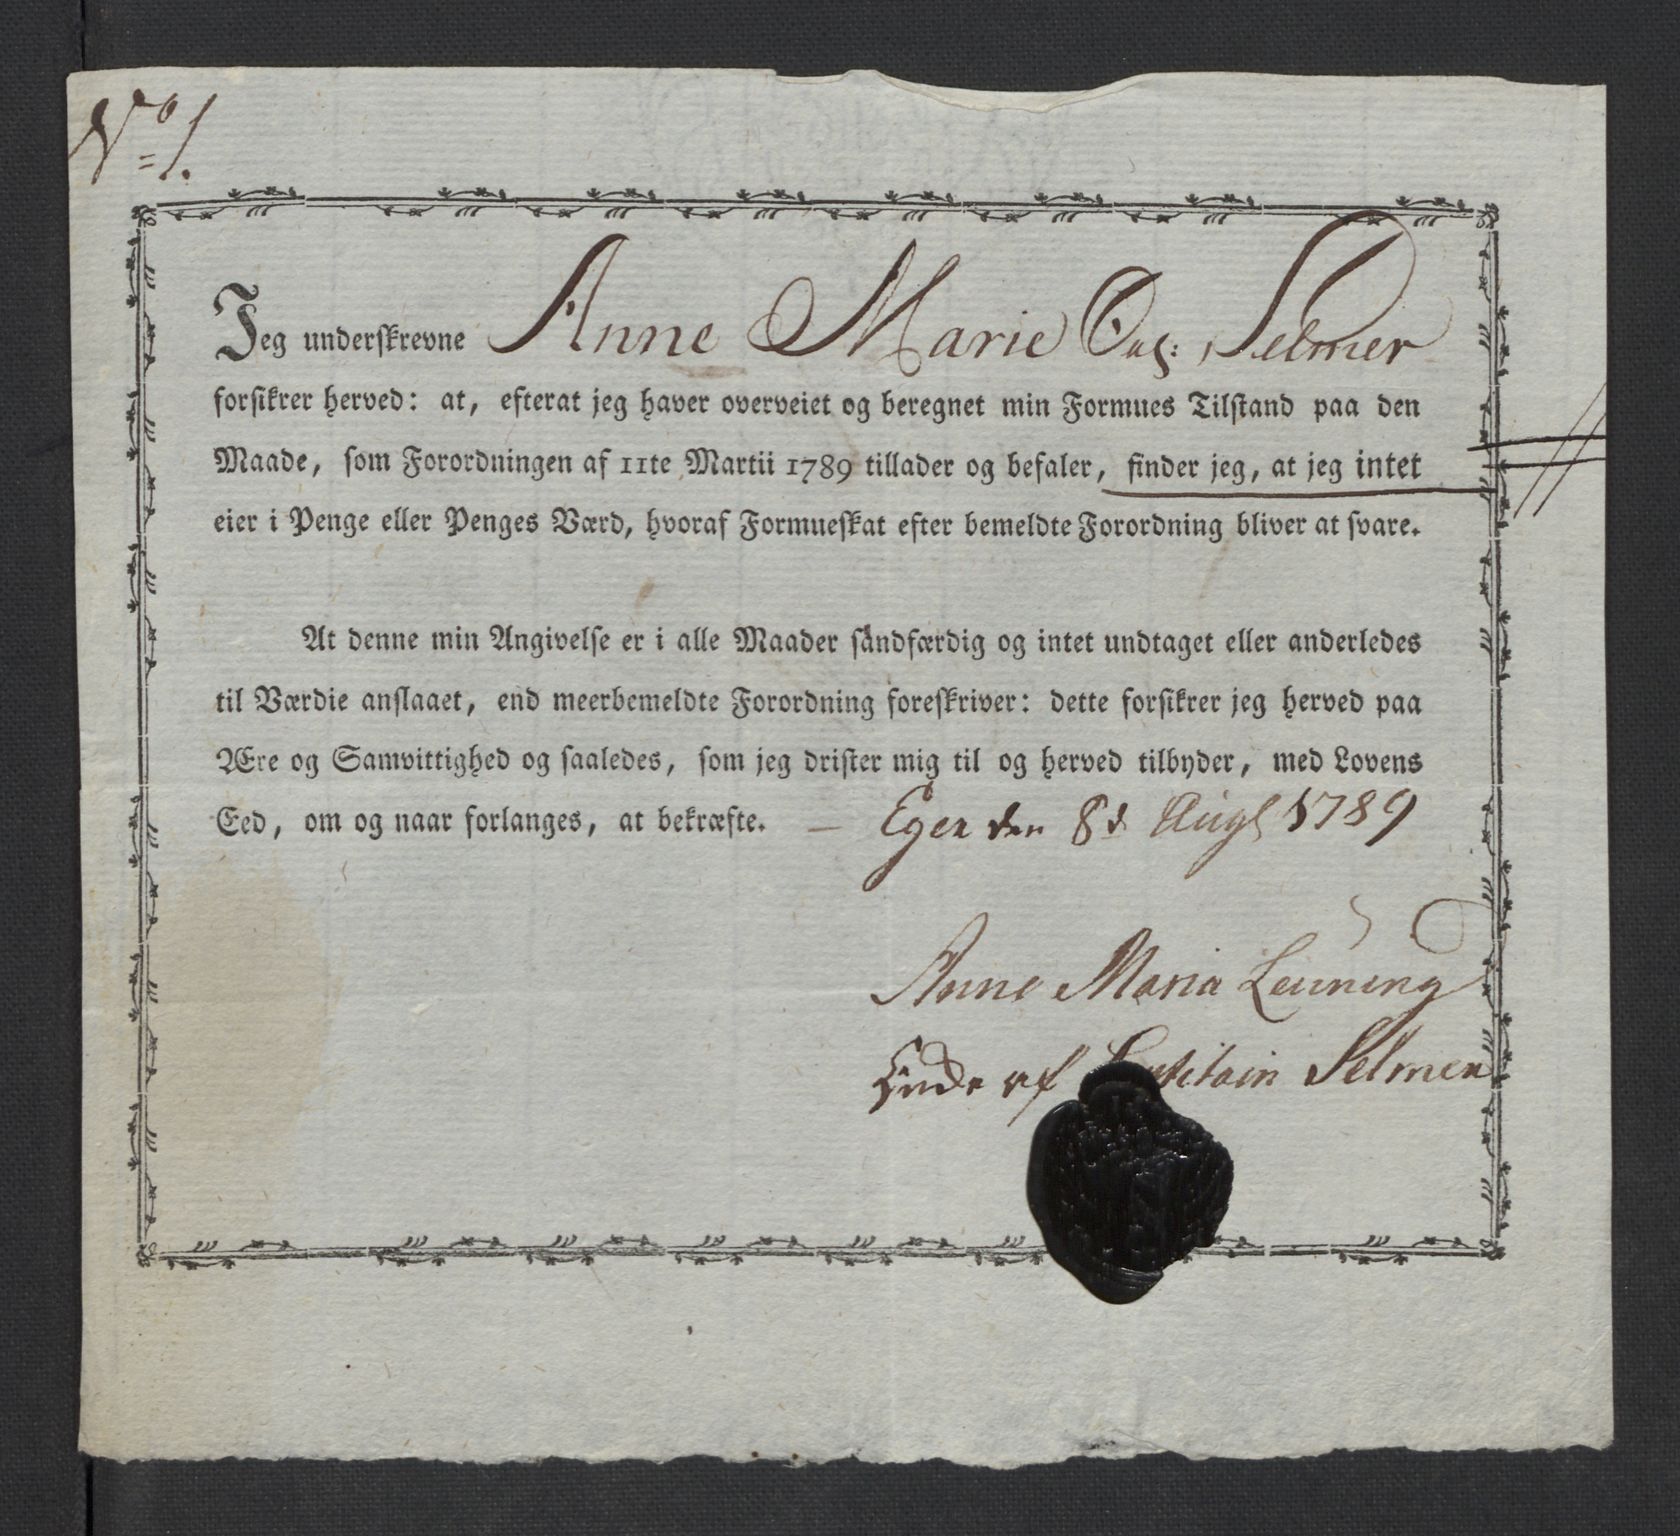 No 1.
Jeg underskrevne Anne Marie Sal: Selmer
forsikrer herved: at, efterat jeg haver overveiet og beregnet min Formues Tilstand paa den
Maade, som Forordningen af 11te Martii 1789 tillader og befaler, finder jeg, at jeg intet
eier i Penge eller Penges Værd, hvoraf Formueskat efter bemeldte Forordning bliver at svare.
At denne min Angivelse er i alle Maader sandfærdig og intet undtaget eller anderledes
til Værdie anslaaet, end meerbemeldte Forordning foreskriver: dette forsikrer jeg herved paa
Ære og Samvittighed og saaledes, som jeg drister mig til og herved tilbyder, med Lovens
Eed, om og naar forlanges, at bekræfte. — Eger den 8d Aug 1789
Anne Maria
af Selmer